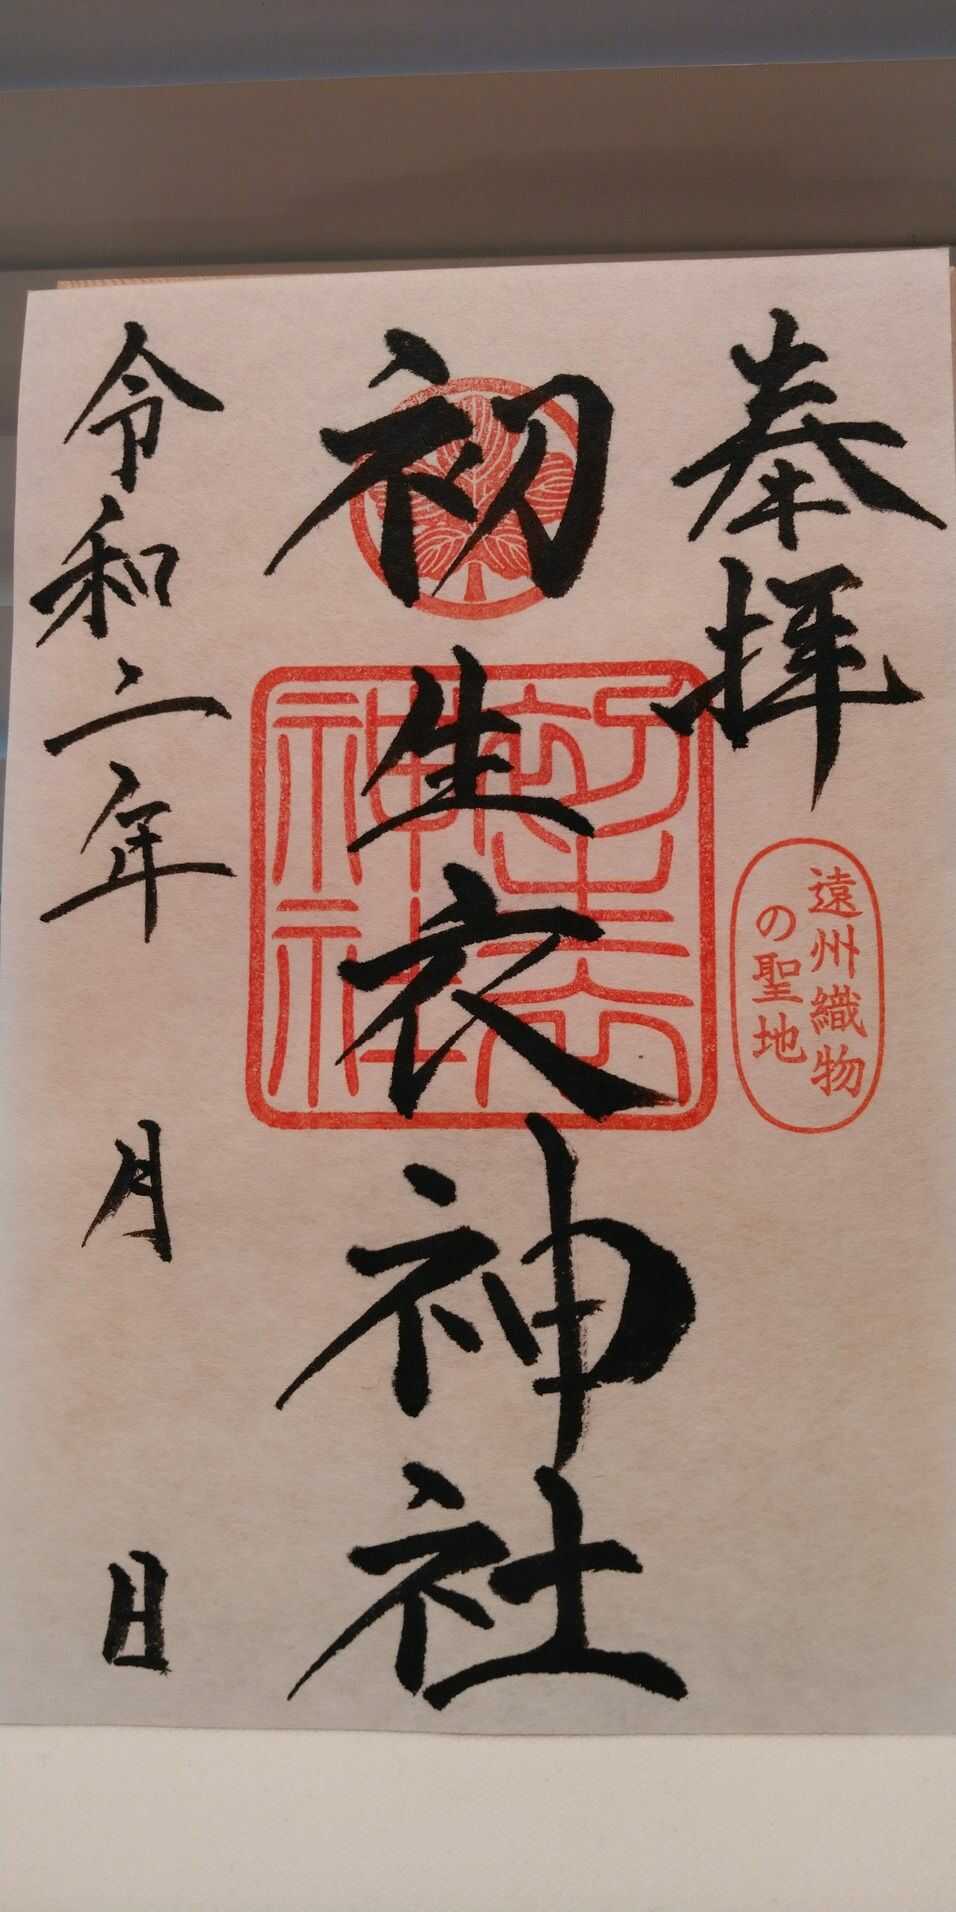 奉拝
遠州織物
の聖地
初生衣神社
初生衣
神社
令和二年 月 日